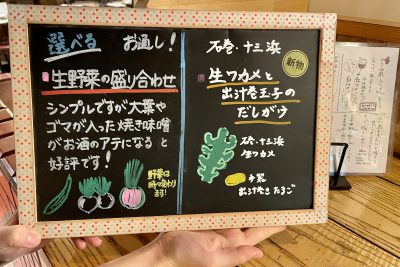 選べる お通し!
生野菜の盛り合わせ
シンプルですが大葉や
ゴマが入った焼き味噌
がお酒のアテになると
好評です!
野菜は
時々変わり
ます!
石巻・十三浜
新物
生ワカメと
出汁巻玉子の
だしがけ
石巻・十三浜
生ワカメ
手製
出汁巻きたまご